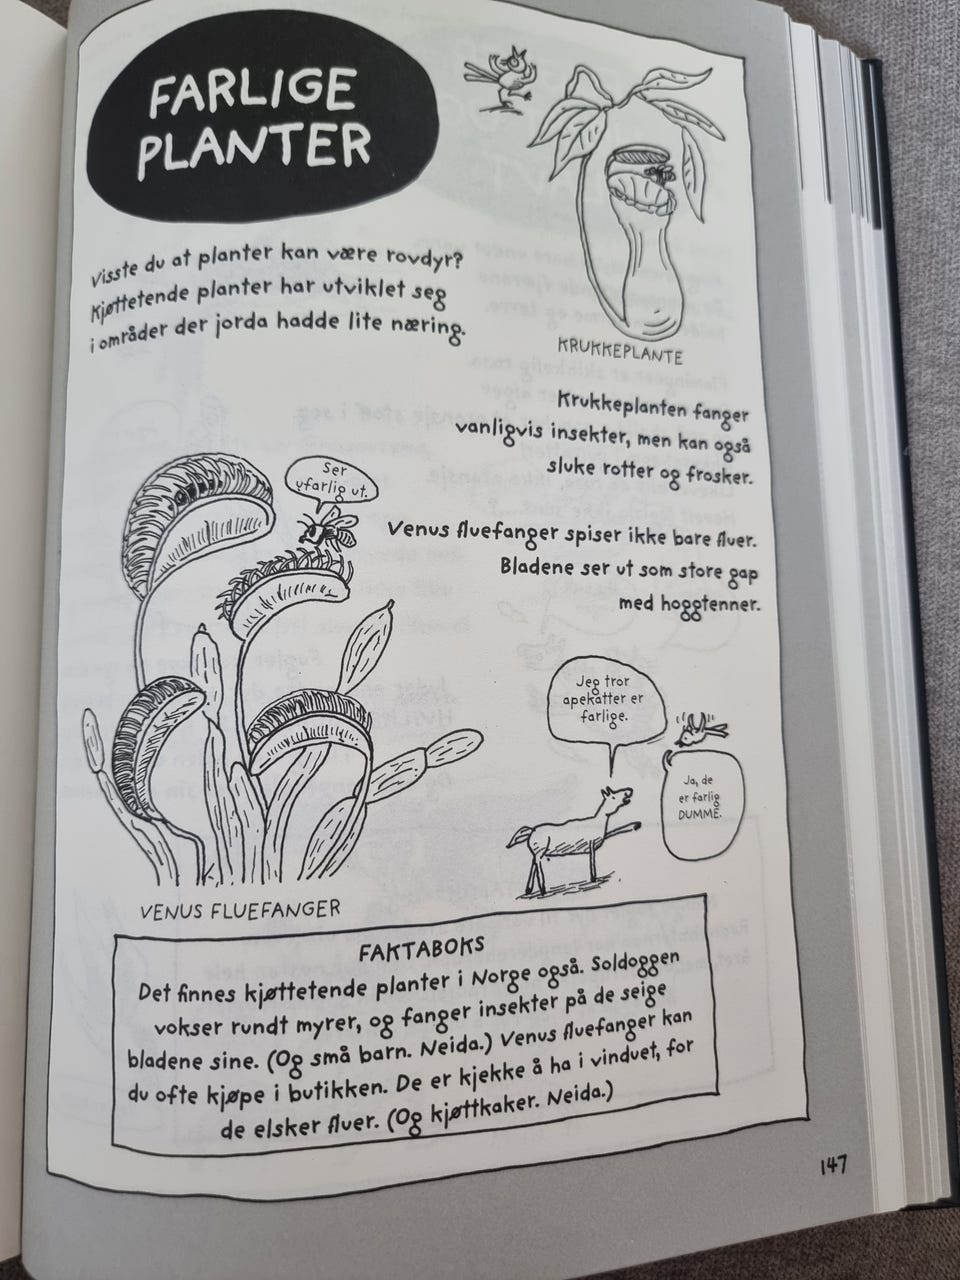 FARLIGE
PLANTER
Visste du at planter kan være rovdyr?
Kjøttetende planter har utviklet seg
i områder der jorda hadde lite næring.
KRUKKEPLANTE
Krukkeplanten fanger
vanligvis insekter, men kan også
sluke rotter og frosker.
Ser
ufarlig ut.
Venus fluefanger spiser ikke bare fluer.
Bladene ser ut som store gap
med hoggtenner.
Jeg tror
apekatter er
farlige.
Ja, de
er farlig
DUMME.
VENUS FLUEFANGER
FAKTABOKS
Det finnes kjøttetende planter i Norge også. Soldoggen
vokser rundt myrer, og fanger insekter på de seige
bladene sine. (Og små barn. Neida.) Venus fluefanger kan
du ofte kjøpe i butikken. De er kjekke å ha i vinduet, for
de elsker fluer. (Og kjøttkaker. Neida.)
147